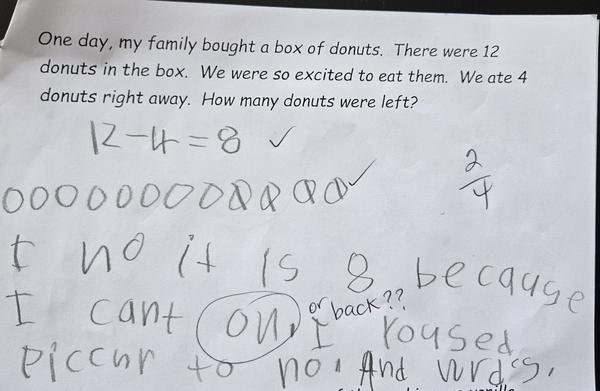 One day, my family bought a box of donuts. There were 12
donuts in the box. We were so excited to eat them. We ate 4
donuts right away. How many donuts were left?
12-4=8 ✓
2/4
000000000000 ✓
I no it is 8 because
I cant on. or back?? I roused
piccur to no. And wrds.